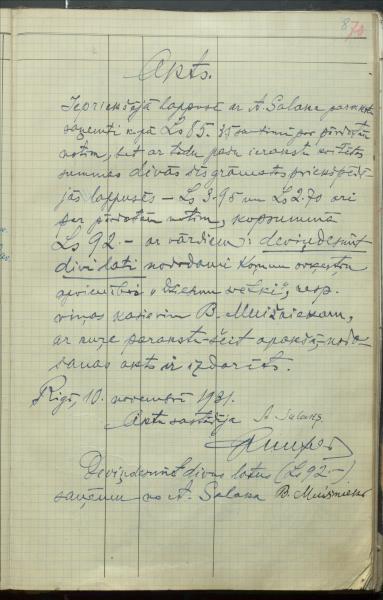 874
Akts.
Iepriekšējā lappusē ar A. Salaka parakstu
saņemti kopā Ls 85.35 santimi par pārdotām
notīm, bet ar tādu pašu parakstu
summas divās šīs grāmatas priekšpēdē-
jās lappusēs – Ls 3.95 un Ls 2.70 arī
par pārdotām notīm, kopsummā
Ls 92.– ar vārdiem: deviņdesmit
divi lati nododami Komun orķestru
apvienībai „Dziesmu", resp.
viņas kasierim B. Muižniekam,
ar kura parakstu šeit apakšā, nodo-
šanas akts ir izdarīts.
Rīgā, 10. novembrī 1931.
Aktu sastādīja A. Salaks
Deviņdesmit divus latus (Ls 92.–)
saņēmu no A. Salaka B. Muižnieks